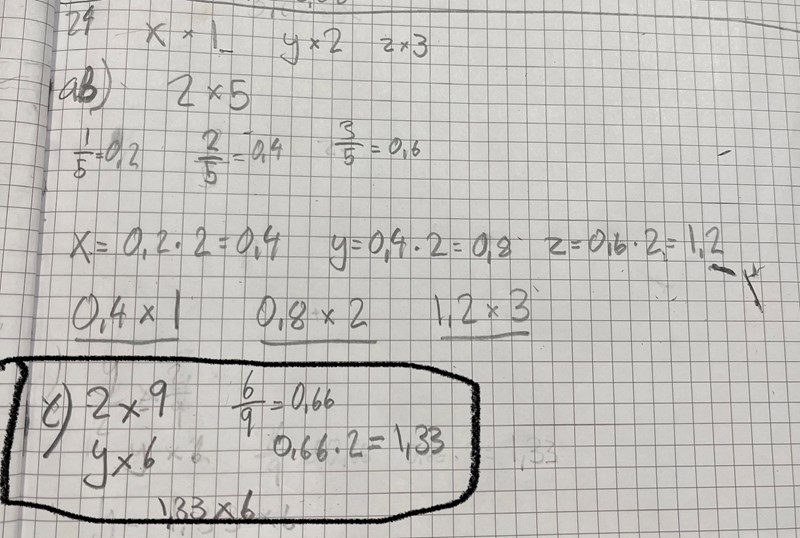 24 x × 1 y × 2 z × 3
ab) 2 × 5
1/5 = 0,2 2/5 = 0,4 3/5 = 0,6
x = 0,2 · 2 = 0,4 y = 0,4 · 2 = 0,8 z = 0,6 · 2 = 1,2
0,4 × 1 0,8 × 2 1,2 × 3
c) 2 × 9 6/9 = 0,66
y × 6 0,66 · 2 = 1,33
1,33 × 6